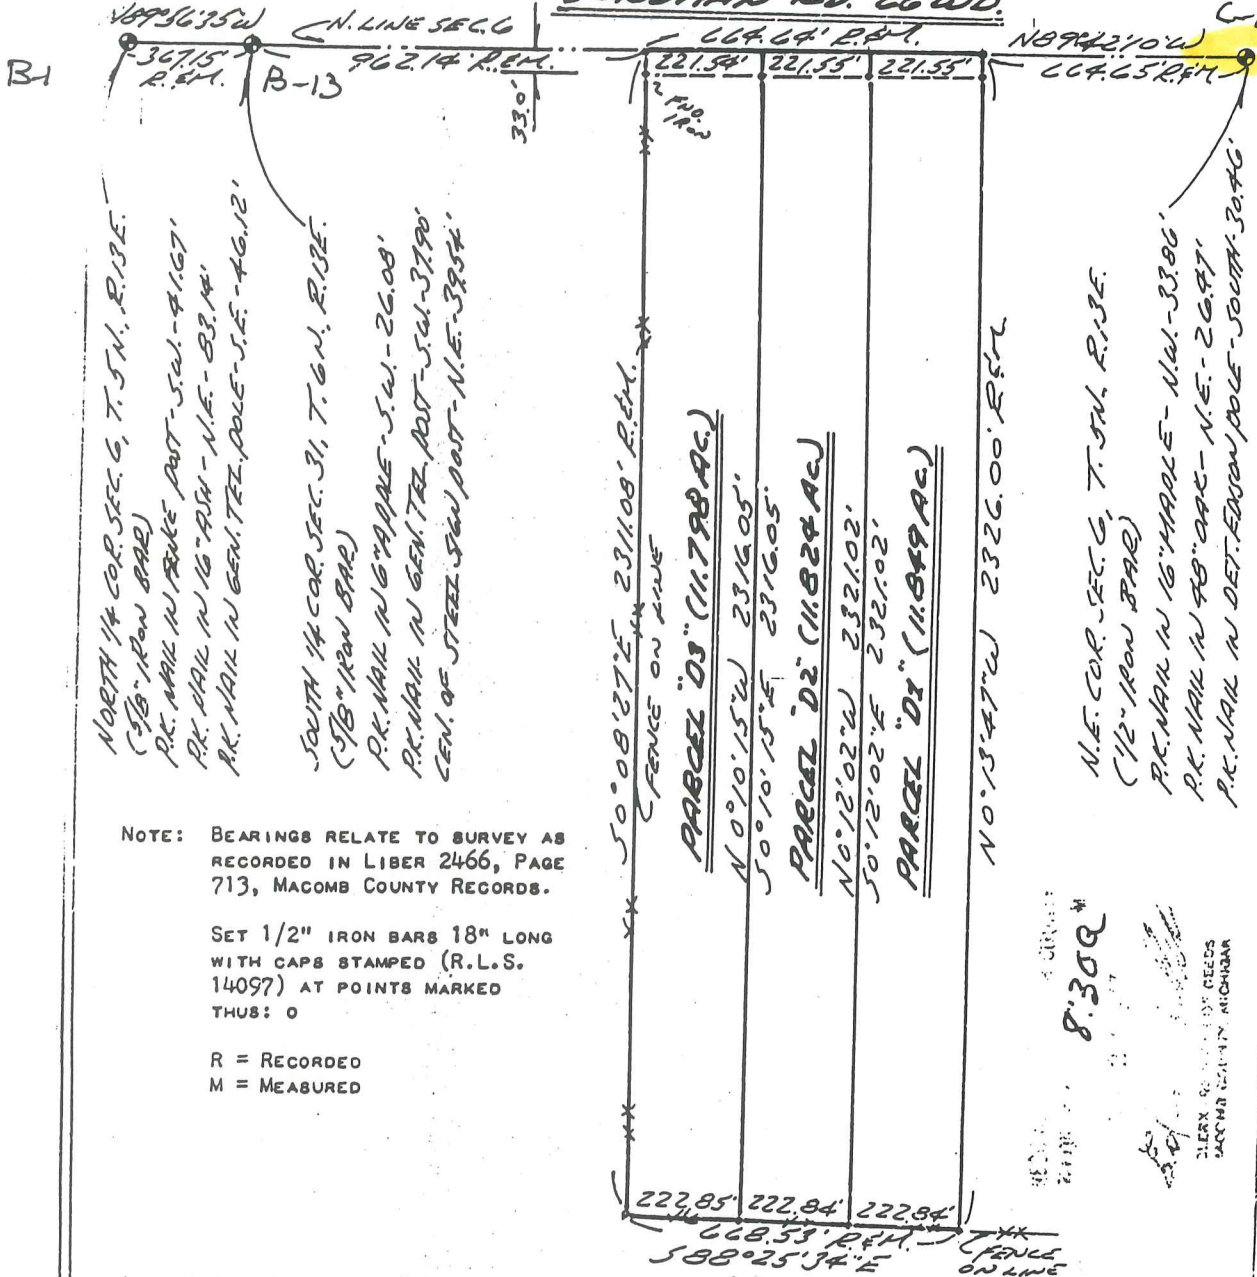 RD. 66' WD.
N89°56'35"W
N. LINE SEC. 6
664.64' R.&M.
N89°42'10"W
367.15'
R.&M.
962.14' R.&M.
221.54' 221.55' 221.55'
664.65' R.&M.
B-1
B-13
33.0'
FND. IRON
NORTH 1/4 COR. SEC. 6, T. 5 N., R. 13 E.
(5/8" IRON BAR)
P.K. NAIL IN FENCE POST - S.W. - 41.67'
P.K. NAIL IN 16" ASH - N.E. - 83.14'
P.K. NAIL IN GEN. TEL. POLE - S.E. - 46.12'
SOUTH 1/4 COR. SEC. 31, T. 6 N., R. 13 E.
(5/8" IRON BAR)
P.K. NAIL IN 6" APPLE - S.W. - 26.08'
P.K. NAIL IN GEN. TEL. POST - S.W. - 37.90'
CEN. OF STEEL SIGN POST - N.E. - 39.54'
S0°08'27"E 2311.08' R.&M.
FENCE ON LINE
PARCEL "D3" (11.798 AC.)
N0°10'15"W 2316.05'
S0°10'15"E 2316.05'
PARCEL "D2" (11.824 AC.)
N0°12'02"W 2321.02'
S0°12'02"E 2321.02'
PARCEL "D1" (11.849 AC.)
N0°13'47"W 2326.00' R.&M.
N.E. COR. SEC. 6, T. 5 N., R. 13 E.
(1/2" IRON BAR)
P.K. NAIL IN 16" MAPLE - N.W. - 33.86'
P.K. NAIL IN 48" OAK - N.E. - 26.47'
P.K. NAIL IN DET. EDISON POLE - SOUTH - 30.46'
NOTE: BEARINGS RELATE TO SURVEY AS
RECORDED IN LIBER 2466, PAGE
713, MACOMB COUNTY RECORDS.
SET 1/2" IRON BARS 18" LONG
WITH CAPS STAMPED (R.L.S.
14097) AT POINTS MARKED
THUS: O
R = RECORDED
M = MEASURED
OF DEEDS
MACOMB COUNTY, MICHIGAN
222.85' 222.84' 222.84'
668.53' R.&M.
S88°25'34"E
FENCE
ON LINE